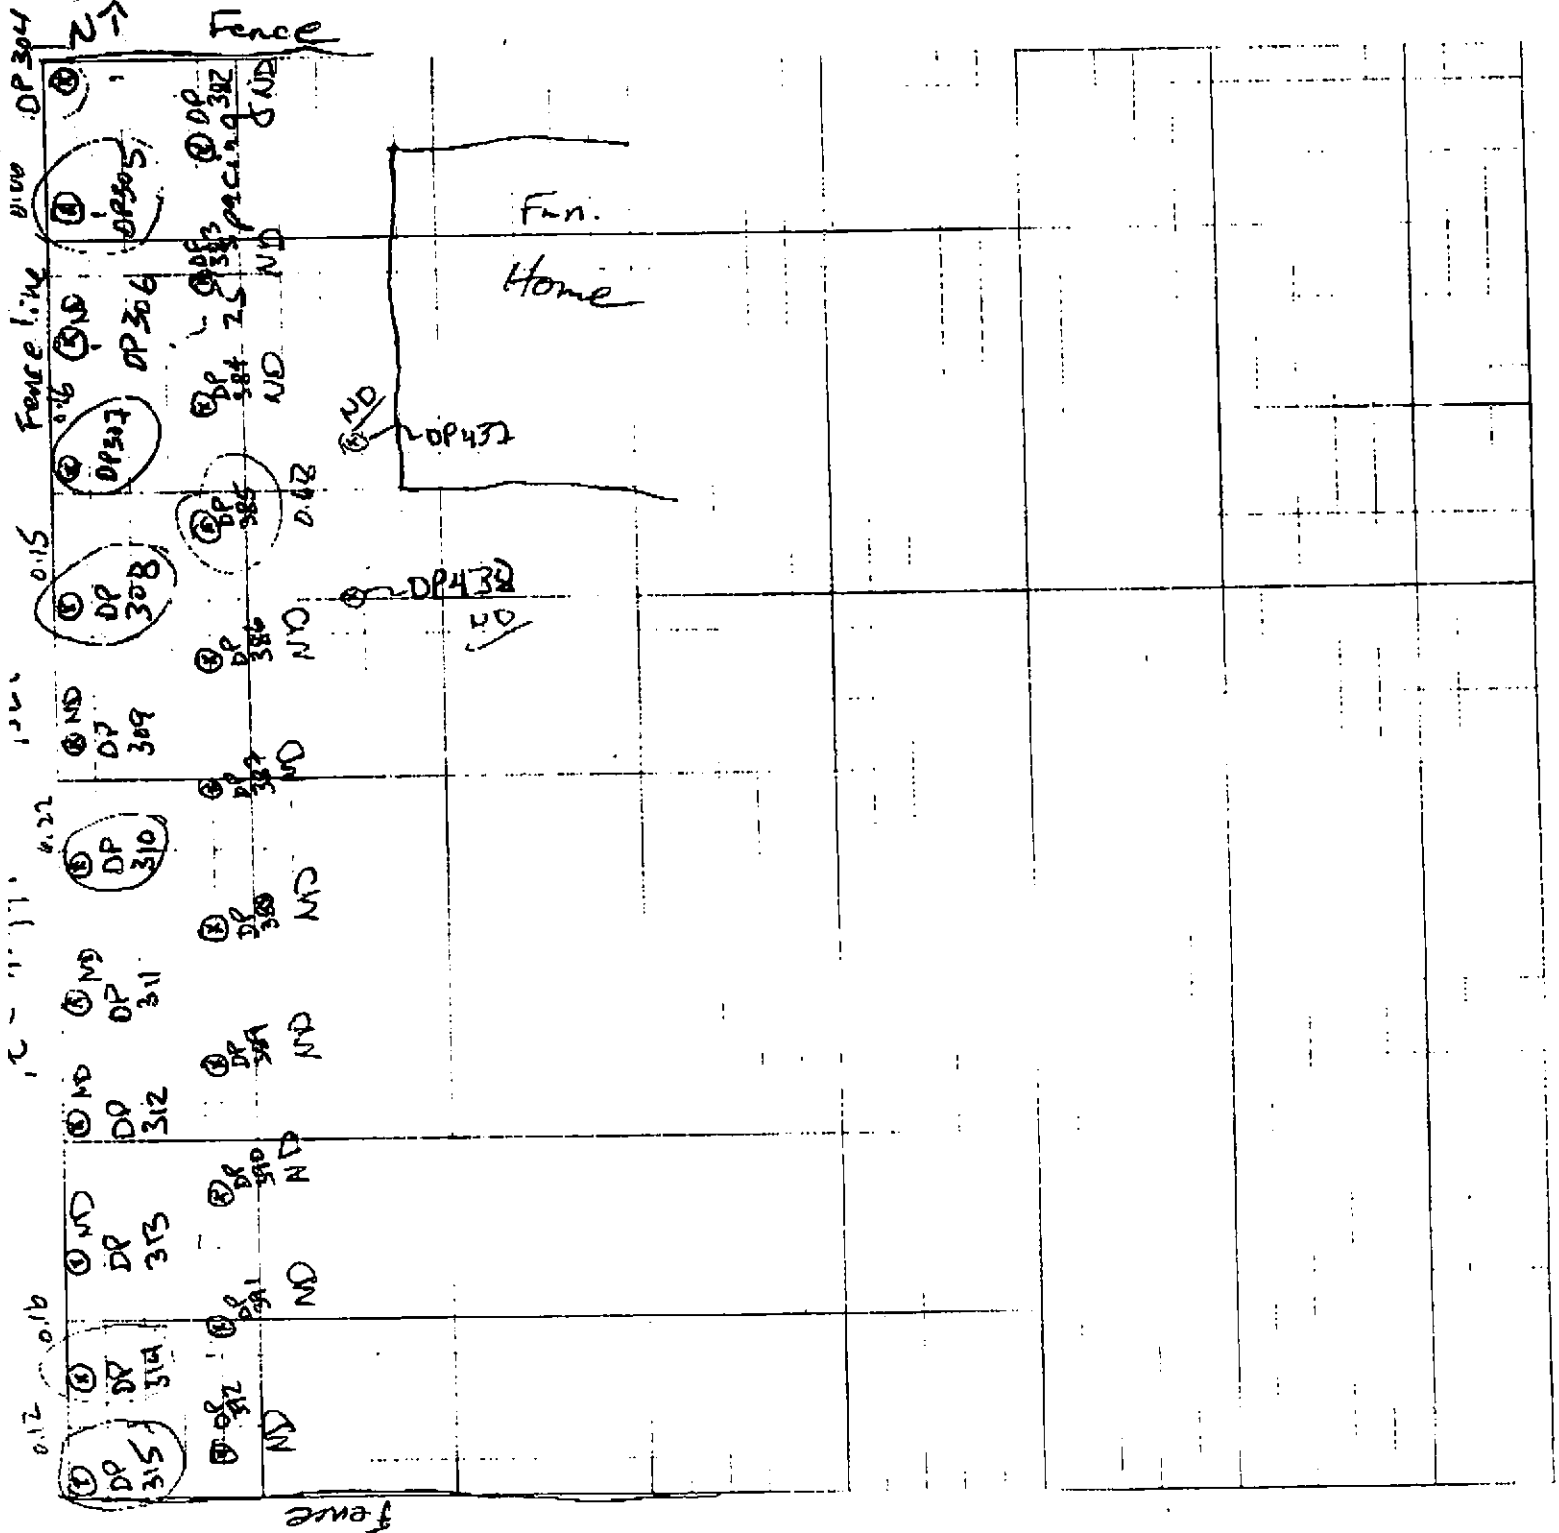 DP 304
N
Fence
Fence line
DP305
ND
DP306
0.16
DP307
0.15
DP
308
ND
DP
309
0.22
DP
310
ND
DP
311
ND
DP
312
ND
DP
313
0.16
DP
314
0.12
DP
315
DP
382
ND
25' spacing
DP
383
ND
DP
384
ND
DP
385
DP
386
ND
DP
387
ND
DP
388
ND
DP
389
ND
DP
390
ND
DP
391
ND
DP
392
ND
Fun.
Home
ND
DP437
DP438
ND
Fence